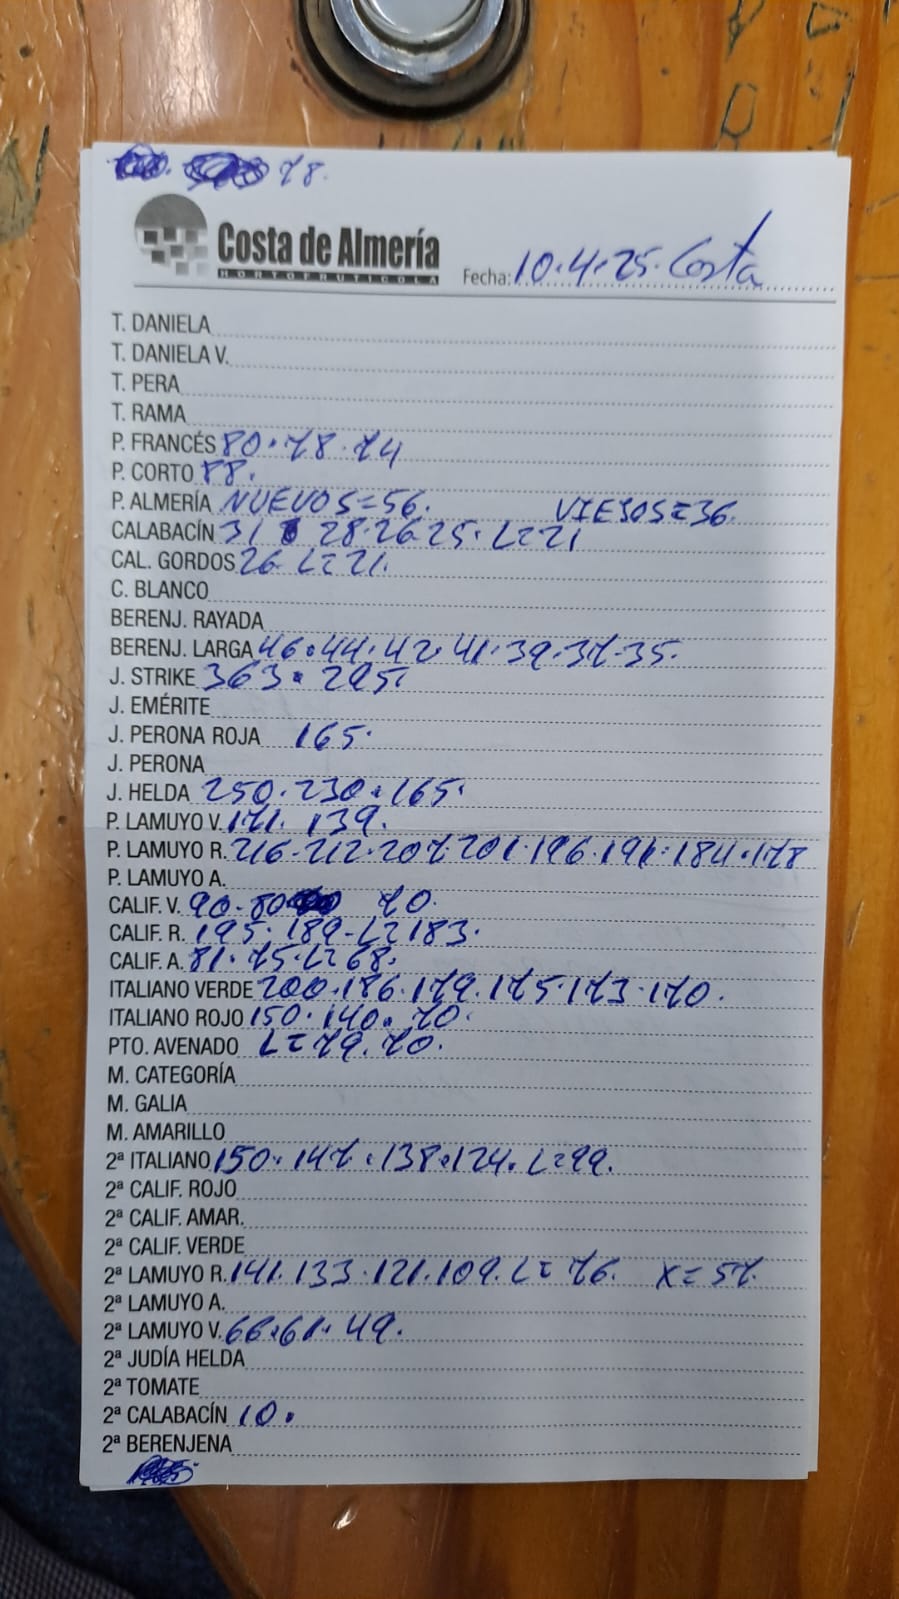 78.
Costa de Almería
HORTOFRUTICOLA
Fecha: 10.4.25. Costa
T. DANIELA
T. DANIELA V.
T. PERA
T. RAMA
P. FRANCÉS 80.78.74
P. CORTO 88.
P. ALMERÍA NUEVOS=56. VIEJOS=36.
CALABACÍN 31 28.26.25. L=21
CAL. GORDOS 26 L=21.
C. BLANCO
BERENJ. RAYADA
BERENJ. LARGA 46.44.42.41.39.37.35.
J. STRIKE 363. 295.
J. EMÉRITE
J. PERONA ROJA 165.
J. PERONA
J. HELDA 250.230.165.
P. LAMUYO V. 171. 139.
P. LAMUYO R. 216.212.207.201.196.191.184.178
P. LAMUYO A.
CALIF. V. 90.80 70.
CALIF. R. 195.189-L=183.
CALIF. A. 81.75.L=68.
ITALIANO VERDE 200.186.179.175.173.170.
ITALIANO ROJO 150.140.70.
PTO. AVENADO L=79.70.
M. CATEGORÍA
M. GALIA
M. AMARILLO
2ª ITALIANO 150.147.138.124.L=99.
2ª CALIF. ROJO
2ª CALIF. AMAR.
2ª CALIF. VERDE
2ª LAMUYO R. 141.133.121.109.L=76. X=57.
2ª LAMUYO A.
2ª LAMUYO V. 66.61.49.
2ª JUDÍA HELDA
2ª TOMATE
2ª CALABACÍN 10.
2ª BERENJENA